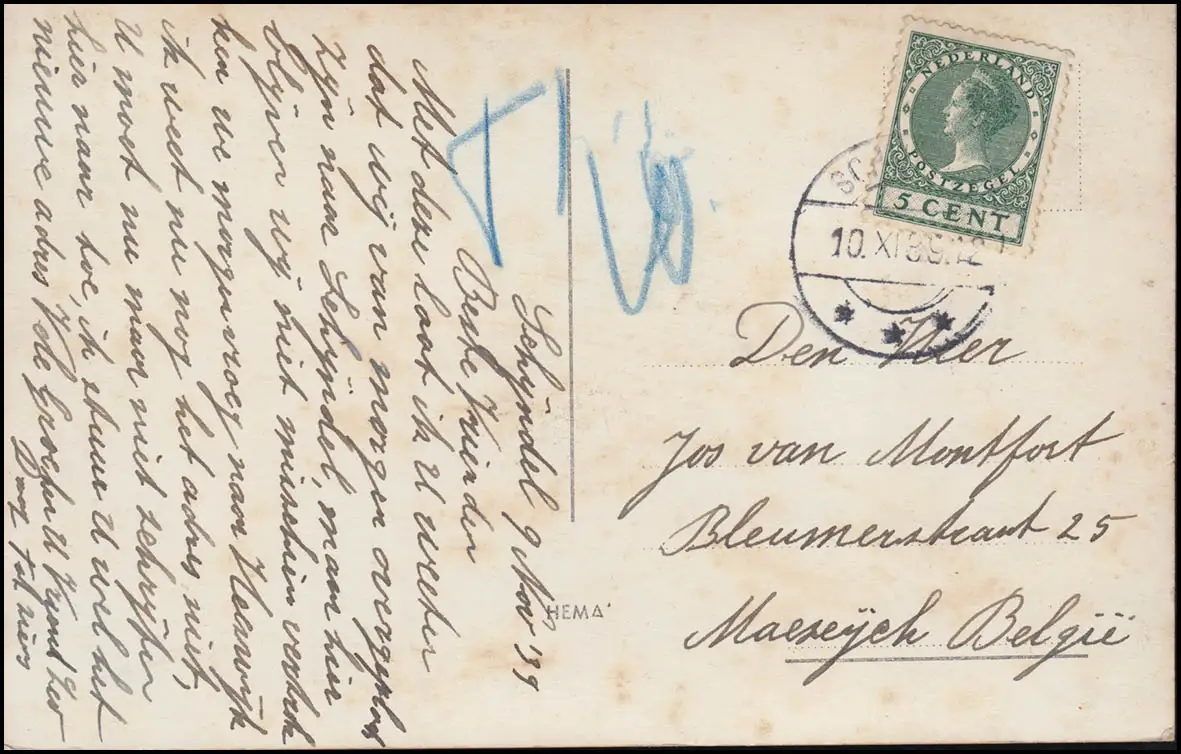 Schijndel 9 Nov '39
Beste Vriend
Met deze laat ik U weten
dat wij van morgen overgeplaa
zijn naar Schijndel, maar hier
blijven wij niet misschien vertrek
ken we morgenvroeg naar Heeswijk
ik weet nu nog het adres niet,
U moet nu maar niet schrijven
hier naar toe, ik stuur U wel het
nieuwe adres Vele Groeten U Vriend
Dag tot ziens
NEDERLAND
POSTZEGEL
5 CENT
10.XI 39.12
Den Heer
Jos van Montfort
Bleumerstraat 25
Maeseijck België
HEMA